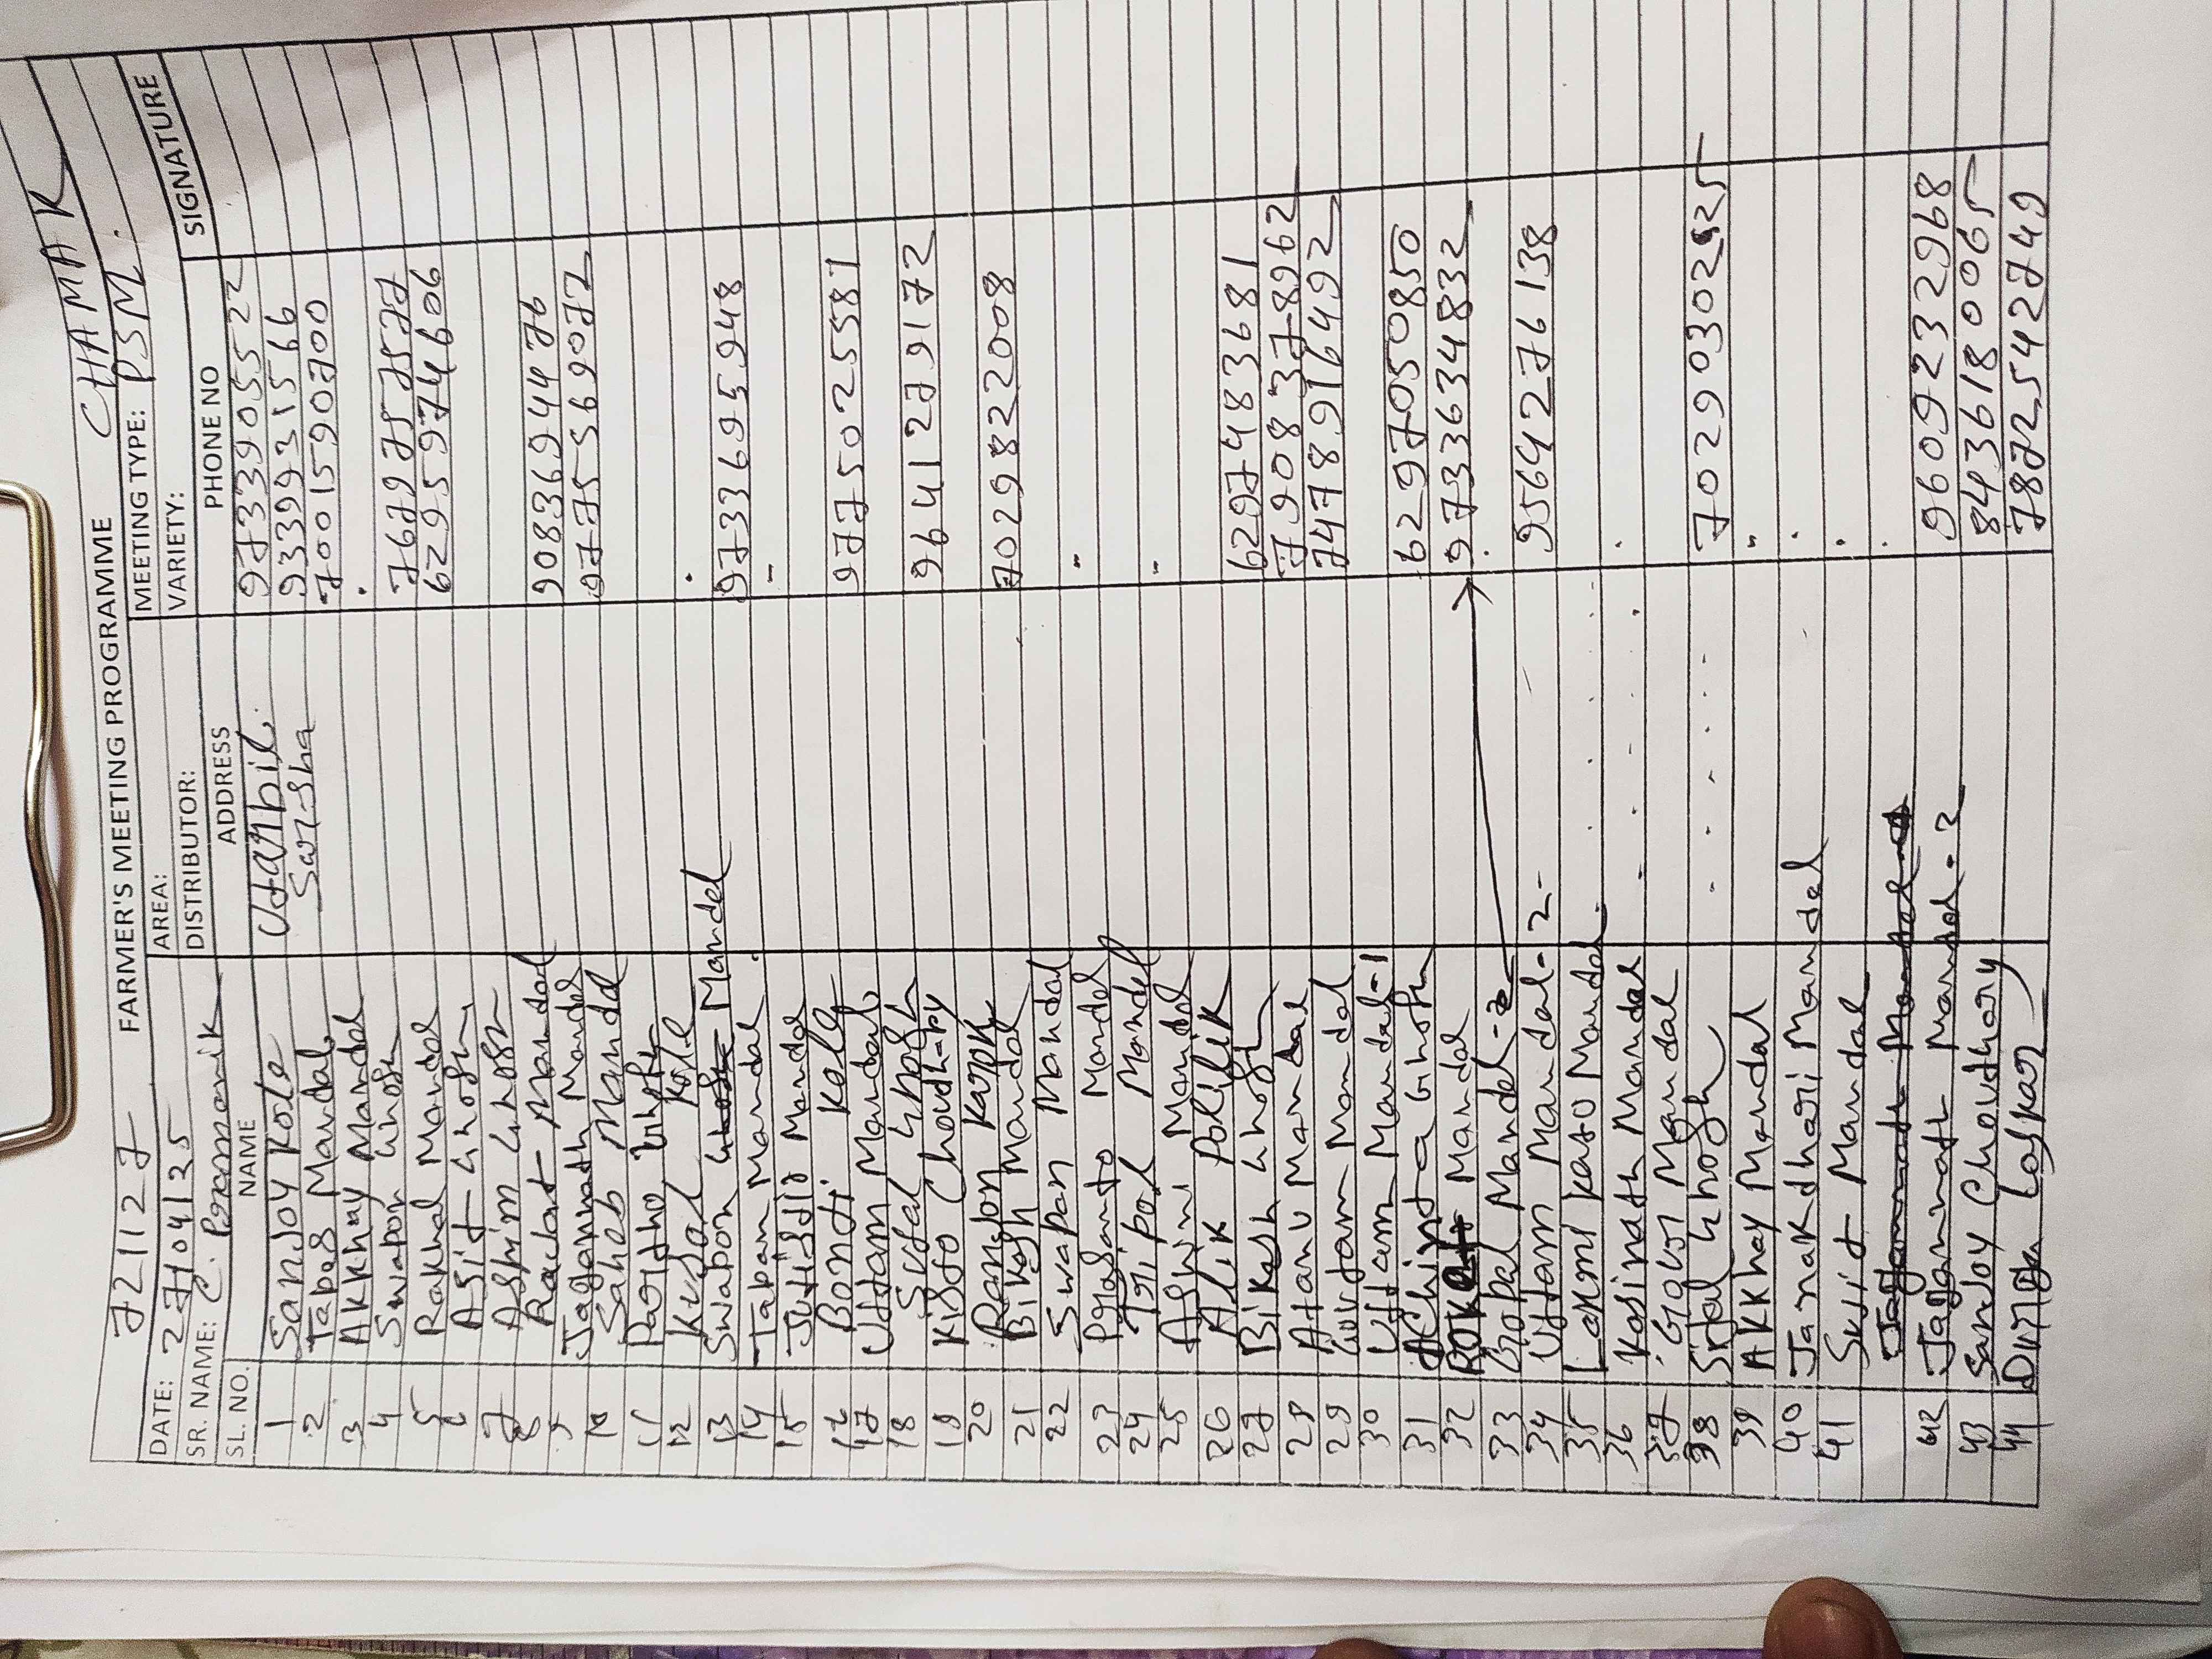 72112 7 FARMER'S MEETING PROGRAMME CHAMAK
DATE: 27/04/25 AREA: MEETING TYPE: PSM.
SR. NAME: C. Pramanik DISTRIBUTOR: VARIETY:
SL. NO. NAME ADDRESS PHONE NO SIGNATURE
1 Sanjoy Kole Uttarbil, 9733905522
2 Tapas Mandal Sarisha 9339931566
3 Akkhay Mandal 7001590700
4 Swapon Ghosh
5 Rakhal Mandal 7679757577
6 Asit Ghosh 6295974606
7 Ashim Ghosh
8 Mandal 9083694476
9 Jagannath Mandal 9775569072
10 Saheb Mandal
11 Partho Ghosh
12 Kusal Kole
13 Swapon Mandal 9733695948
14 Tapan Mandal
15 Mandal
16 Kole 9775025581
17 Uttam Mandal
18 Ghosh 9641279172
19 Kisto Choudhary
20 Ranjon 7029822008
21 Bikash Mandal
22 Swapan Mandal "
23 Prosanto Mandal
24 Mandal "
25 Aswini Mandal
26 Alik Pollik 6297483681
27 Bikash Ghosh 7908378962
28 Atanu Mandal 7478916492
29 Goutam Mandal
30 Uttam Mandal-1 6297050850
31 Achinta Ghosh 9733634832
32 Mandal
33 Gopal Mandal-2 9564276138
34 Uttam Mandal-2
35 Laxmi Mandal
36 Kasinath Mandal
37 Gour Mandal
38 Ghosh 70290302525
39 Akkhay Mandal "
40 Janakdhari Mandal
41 Sujit Mandal
Jagannath Mandal
42 Jagannath Mandal-2 9609232968
43 Sanjoy Choudhary 8436180065
44 Durga Laskar 7872542749